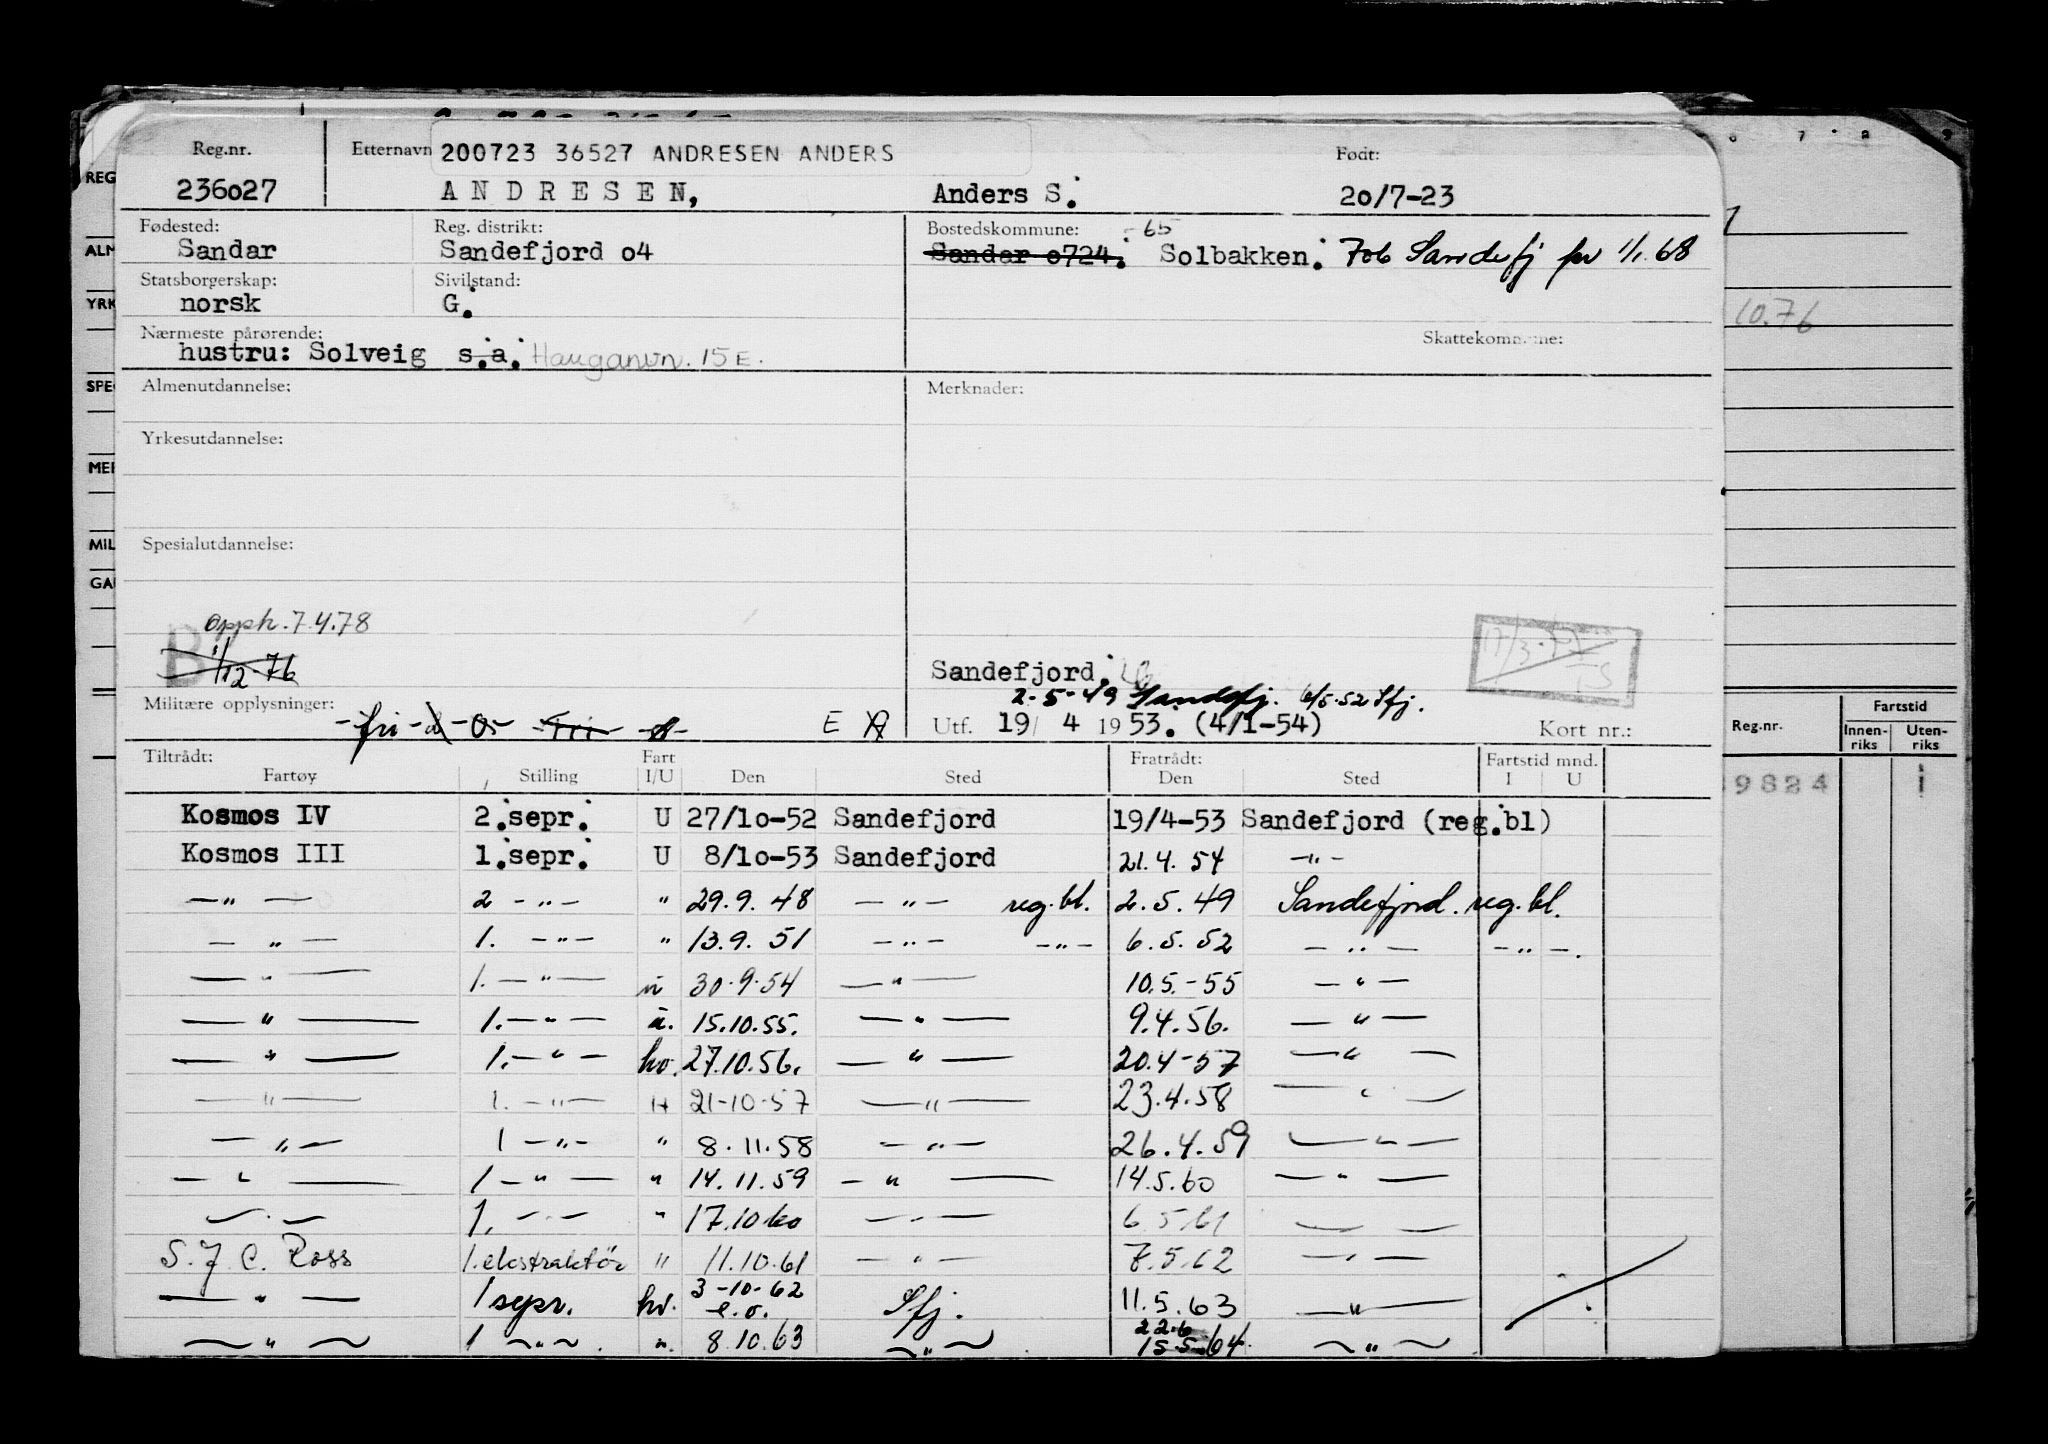 Reg.nr. Etternavn 200723 36527 ANDRESEN ANDERS Født:
236027 ANDRESEN, Anders S. 20/7-23
Fødested: Reg. distrikt: Bostedskommune: -65
Sandar Sandefjord o4 Sandar o724. Solbakken. 706 Sandefj pr 1/1.68
Statsborgerskap: Sivilstand:
norsk G.
Nærmeste pårørende: Skattekommune:
hustru: Solveig s.a. Hauganvn. 15 E.
Almenutdannelse: Merknader:
Yrkesutdannelse:
Spesialutdannelse:
opph. 7.4.78
B 1/12-76
Sandefjord.
2-5-49 Sandefj. 6/5-52 Sfj.
Militære opplysninger: -fri- Utf. 19/ 4 1953. (4/1-54) Kort nr.:
Tiltrådt: Fart Fratrådt: Fartstid mnd.
Fartøy Stilling I/U Den Sted Den Sted I U
Kosmos IV 2.sepr. U 27/10-52 Sandefjord 19/4-53 Sandefjord (reg.bl)
Kosmos III 1.sepr. U 8/10-53 Sandefjord 21.4. 54 -"-
-"- 2 -"- " 29.9. 48 -"- reg.bl. 2.5.49 Sandefjord. reg.bl.
-"- 1. -"- " 13.9. 51 -"- -"- 6.5.52 -"- -"-.
-"- 1. -"- u 30.9.54 -"- 10.5.-55 -"-
-"- 1. -"- u. 15.10.55. -"- 9.4.56. -"-
-"- 1. -"- hv. 27.10.56. -"- 20.4-57 -"-
-"- 1. -"- H 21-10-57 -"- 23.4.58 -"-
-"- 1 -"- " 8.11.58 -"- 26.4.59 -"-
-"- 1 -"- " 14.11.59 -"- 14.5.60 -"-
-"- 1. -"- " 17.10 60 -"- 6.5.61 -"-
S. J. C. Ross 1. ekstraktör " 11.10.61 -"- 7.5.62 -"-
-"- 1 sepr. hv. 3-10-62 e.o. Sfj. 11.5.63 -"-
-"- 1 -"- . ". 8.10.63 -"- 22.6 15.5.64. -"-
REG
ALM
YRK
SPE
MER
MIL
GA
10.76
Reg.nr. Fartstid
Innenriks Utenriks
9824 1